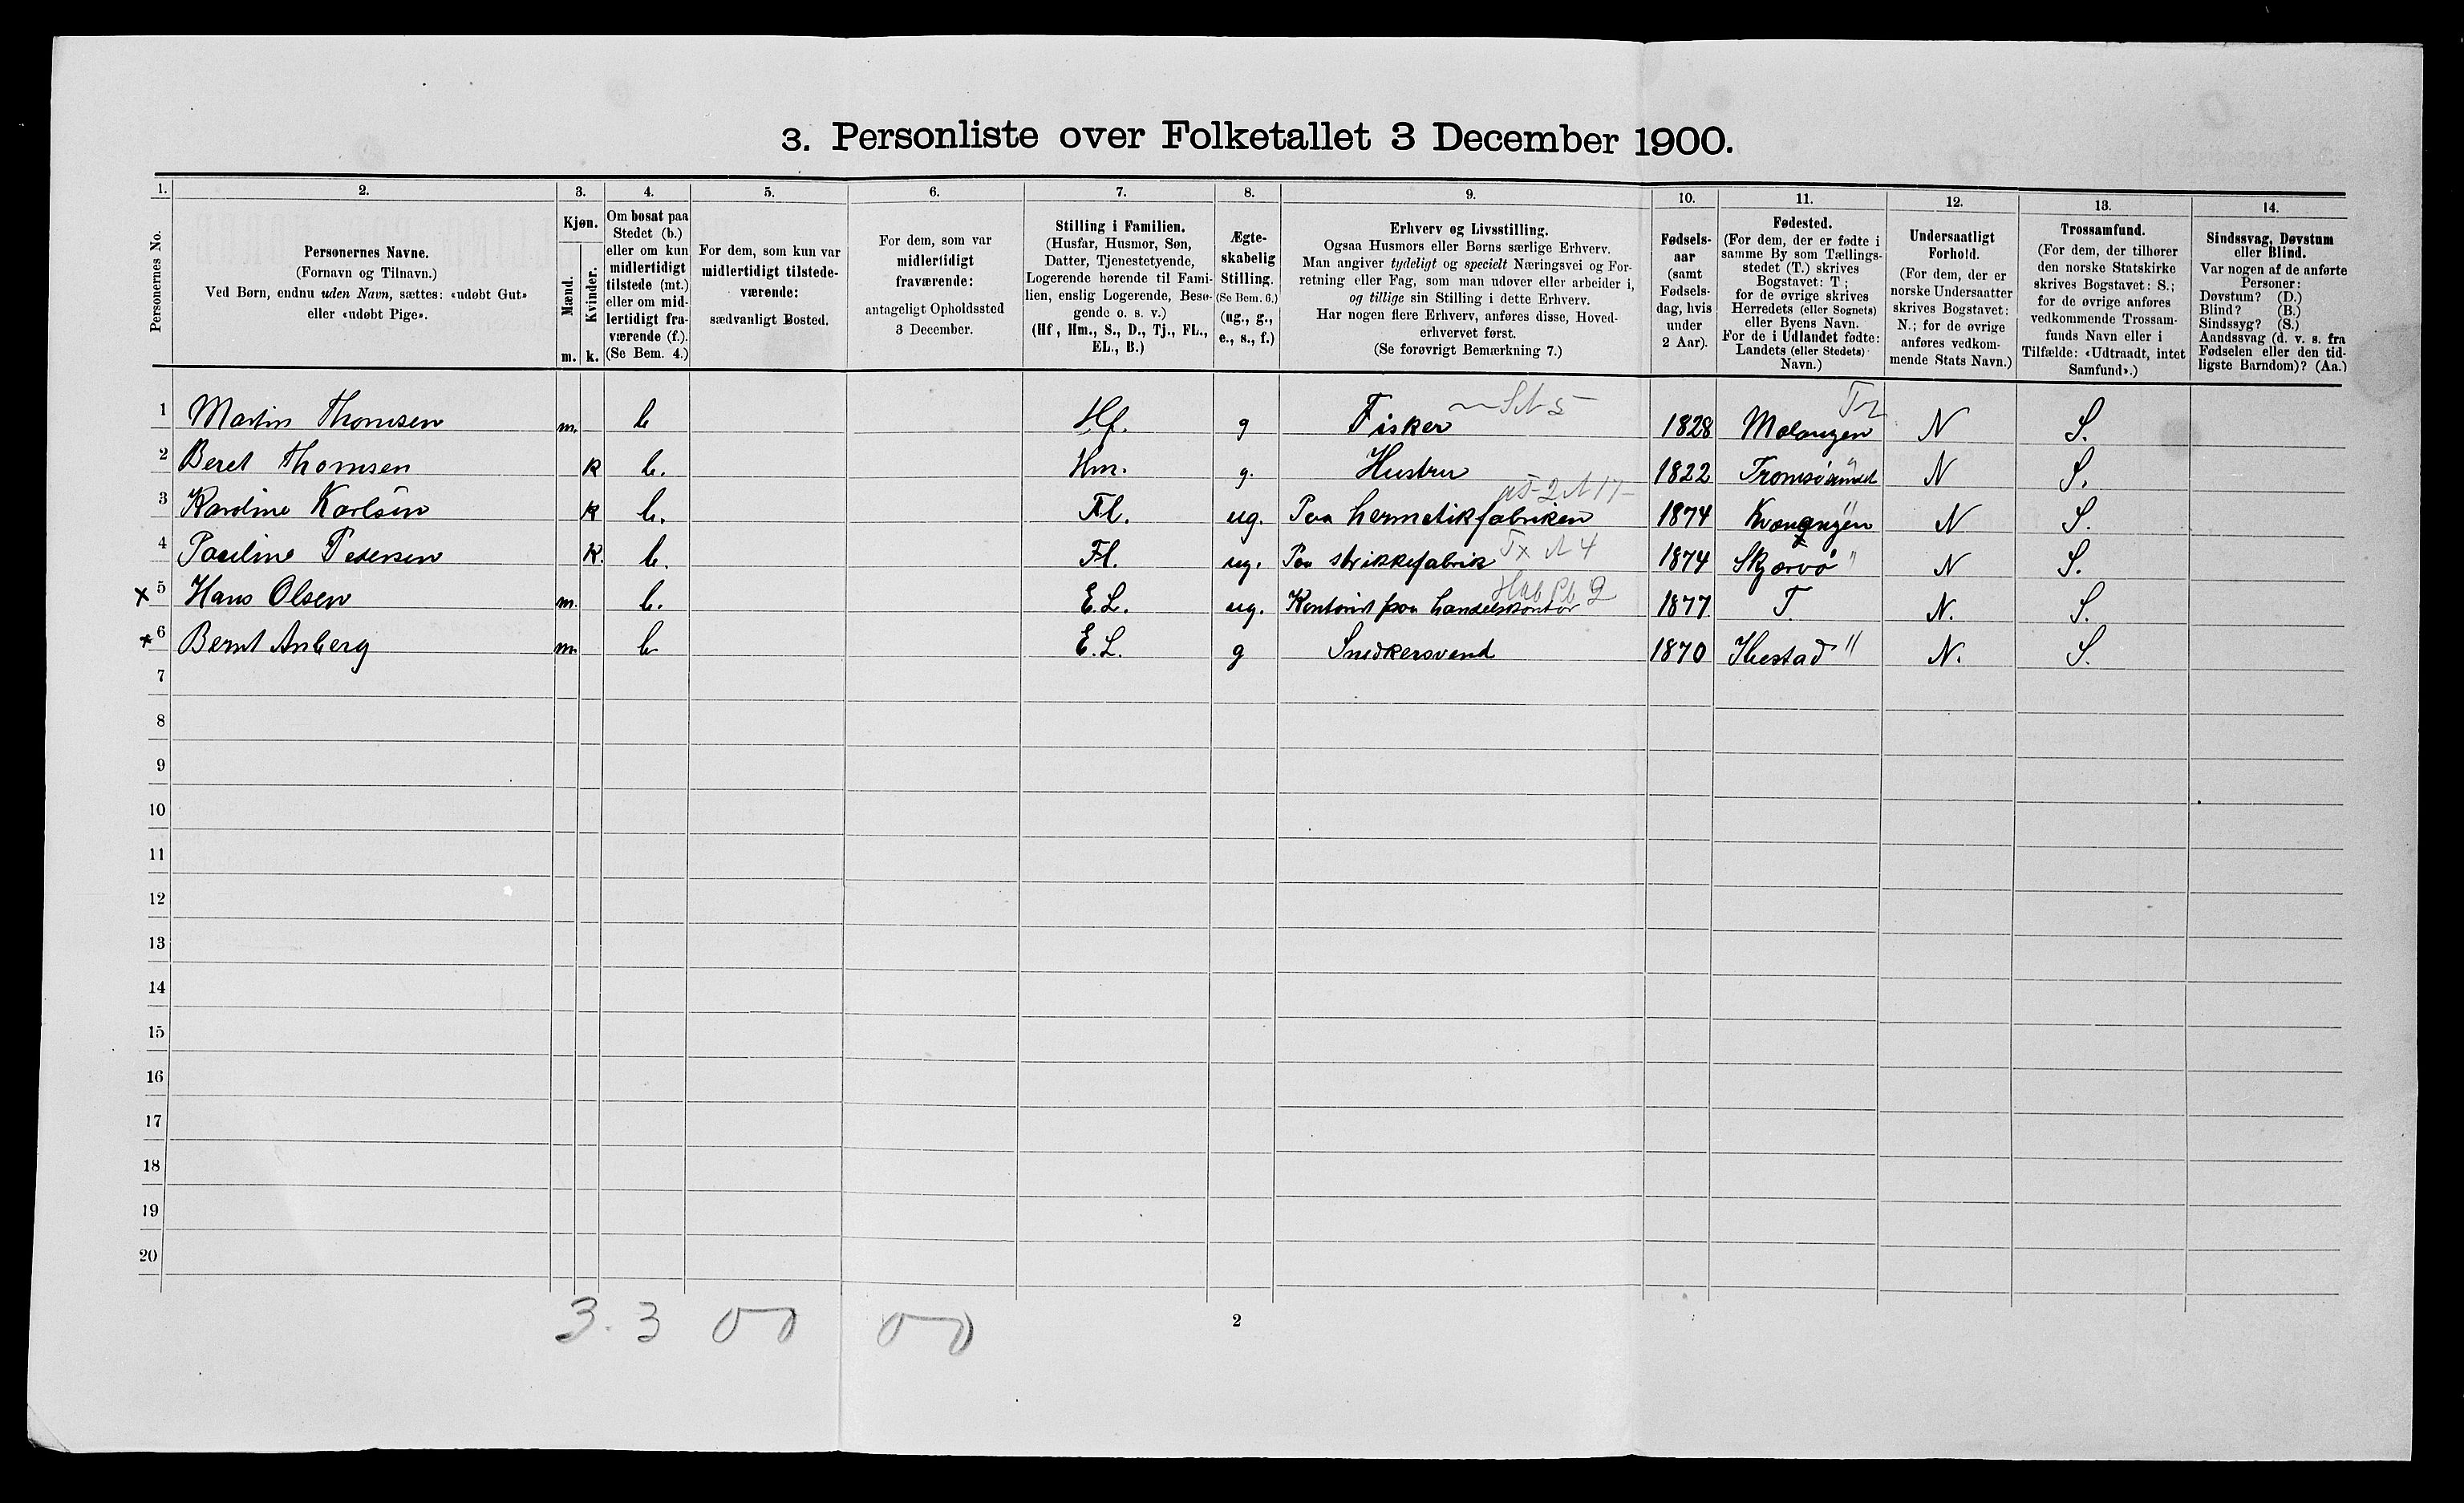 3. Personliste over Folketallet 3 December 1900.
1. 2. 3. 4. 5. 6. 7. 8. 9. 10. 11. 12. 13. 14.
Personernes No.
Personernes Navne.
(Fornavn og Tilnavn.)
Ved Børn, endnu uden Navn, sættes: «udøbt Gut»
eller «udøbt Pige».
Kjøn.
Mænd.
Kvinder.
m. k.
Om bosat paa
Stedet (b.)
eller om kun
midlertidigt
tilstede (mt.)
eller om mid-
lertidigt fra-
værende (f.).
(Se Bem. 4.)
For dem, som kun var
midlertidigt tilstede-
værende:
sædvanligt Bosted.
For dem, som var
midlertidigt
fraværende:
antageligt Opholdssted
3 December.
Stilling i Familien.
(Husfar, Husmor, Søn,
Datter, Tjenestetyende,
Logerende hørende til Fami-
lien, enslig Logerende, Besø-
gende o. s. v.)
(Hf., Hm., S., D., Tj., FL.,
EL., B.)
Ægte-
skabelig
Stilling.
(Se Bem. 6.)
(ug., g.,
e., s., f.)
Erhverv og Livsstilling.
Ogsaa Husmors eller Børns særlige Erhverv.
Man angiver tydeligt og specielt Næringsvei og For-
retning eller Fag, som man udøver eller arbeider i,
og tillige sin Stilling i dette Erhverv.
Har nogen flere Erhverv, anføres disse, Hoved-
erhvervet først.
(Se forøvrigt Bemærkning 7.)
Fødsels-
aar
(samt
Fødsels-
dag, hvis
under
2 Aar).
Fødested.
(For dem, der er fødte i
samme By som Tællings-
stedet (T.) skrives
Bogstavet: T;
for de øvrige skrives
Herredets (eller Sognets)
eller Byens Navn.
For de i Udlandet fødte:
Landets (eller Stedets)
Navn.)
Undersaatligt
Forhold.
(For dem, der er
norske Undersaatter
skrives Bogstavet:
N.; for de øvrige
anføres vedkom-
mende Stats Navn.)
Trossamfund.
(For dem, der tilhører
den norske Statskirke
skrives Bogstavet: S.;
for de øvrige anføres
vedkommende Trossam-
funds Navn eller i
Tilfælde: «Udtraadt, intet
Samfund».)
Sindssvag, Døvstum
eller Blind.
Var nogen af de anførte
Personer:
Døvstum? (D.)
Blind? (B.)
Sindssyg? (S.)
Aandssvag (d. v. s. fra
Fødselen eller den tid-
ligste Barndom)? (Aa.)
1 Martin Thomsen m. b Hf. g Fisker 1828 Malangen N S.
2 Beret Thomsen k b. Hm. g. Hustru 1822 Tromsøsundet N S.
3 Karoline Karlsen k b. Fl. ug. Paa hermetikfabriken 1874 Kvænangen N S.
4 Pauline Pedersen k. b. Fl. ug. Paa strikkefabrik 1874 Skjærvø " N S.
x 5 Hans Olsen m. b. E.L. ug. Kontorist paa handelskontor 1877 T. N. S.
x 6 Bernt Anberg m. b E.L. g Snedkersvend 1870 Ibestad " N. S.
7
8
9
10
11
12
13
14
15
16
17
18
19
20
3. 3 0 0 0 0
2